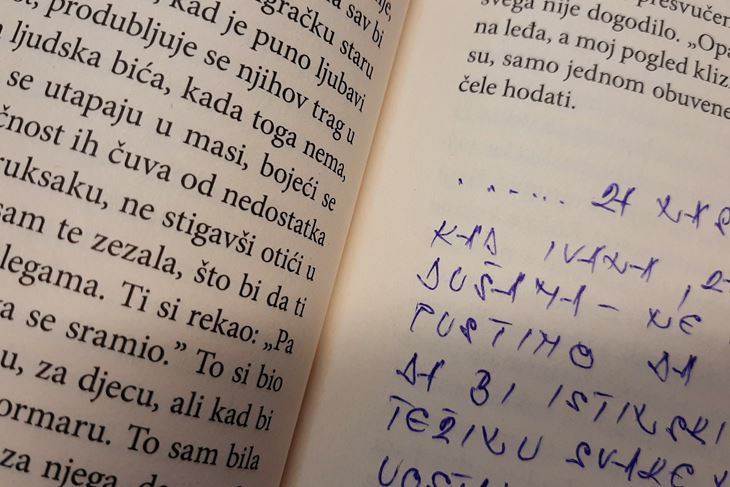 sav bi
igračku staru
kad je puno ljubavi
produbljuje se njihov trag u
ljudska bića, kada toga nema,
se utapaju u masi, bojeći se
ih čuva od nedostatka
ruksaku, ne stigavši otići u
sam te zezala, što bi da ti
Ti si rekao: „Pa
se sramio.” To si bio
za djecu, ali kad bi
To sam bila
za njega,
svega nije dogodilo.
na leđa, a moj pogled
su, samo jednom obuvene
čele hodati.
....... ZA NAS
KAD IVANA,
DUŠAMA - NE
PUSTIMO DA
DA BI ISTINSKI
TEŽINU SVAKE